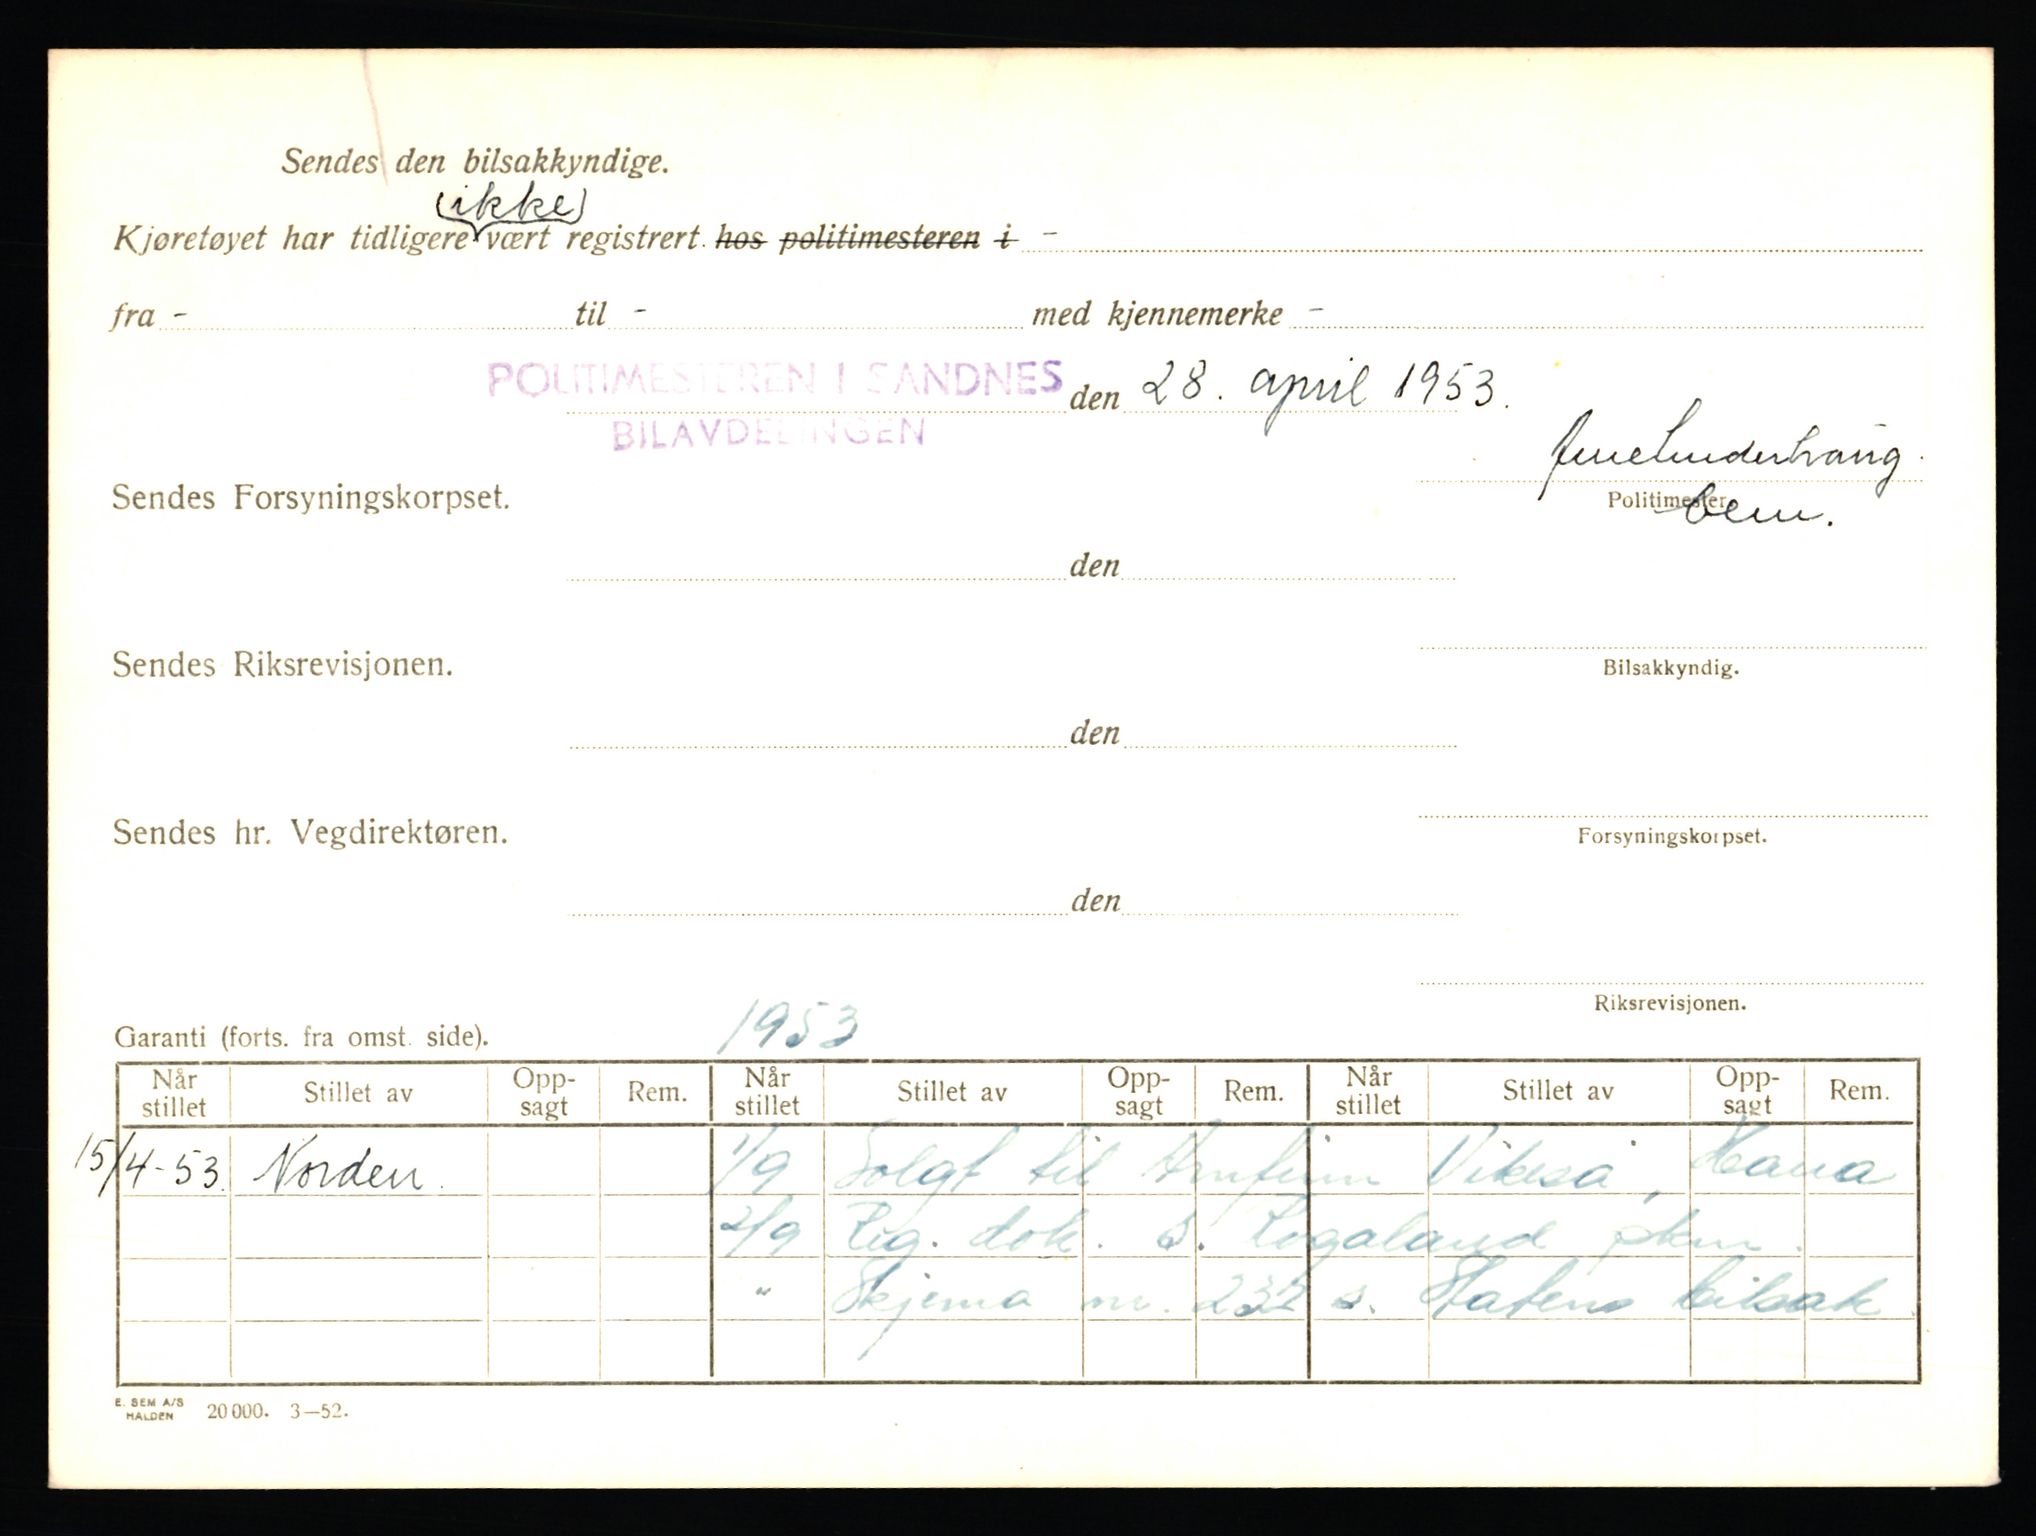 Sendes den bilsakkyndige.
(ikke)
Kjøretøyet har tidligere vært registrert hos politimesteren i -
fra - til - med kjennemerke -
POLITIMESTEREN I SANDNES
BILAVDELINGEN
den 28. april 1953.
Sendes Forsyningskorpset.
Politimester.
den
Sendes Riksrevisjonen.
Bilsakkyndig.
den
Sendes hr. Vegdirektøren.
Forsyningskorpset.
den
Riksrevisjonen.
Garanti (forts. fra omst. side).
1953
Når stillet Stillet av Opp-sagt Rem. Når stillet Stillet av Opp-sagt Rem. Når stillet Stillet av Opp-sagt Rem.
15/4-53. Norden. 1/9 Solgt til Arnfinn Vikeså, Hana
2/9 Reg. dok. s. Rogaland pkm.
" Skjema nr. 232 s. Statens bilsak.
E. SEM A/S
HALDEN
20 000. 3—52.